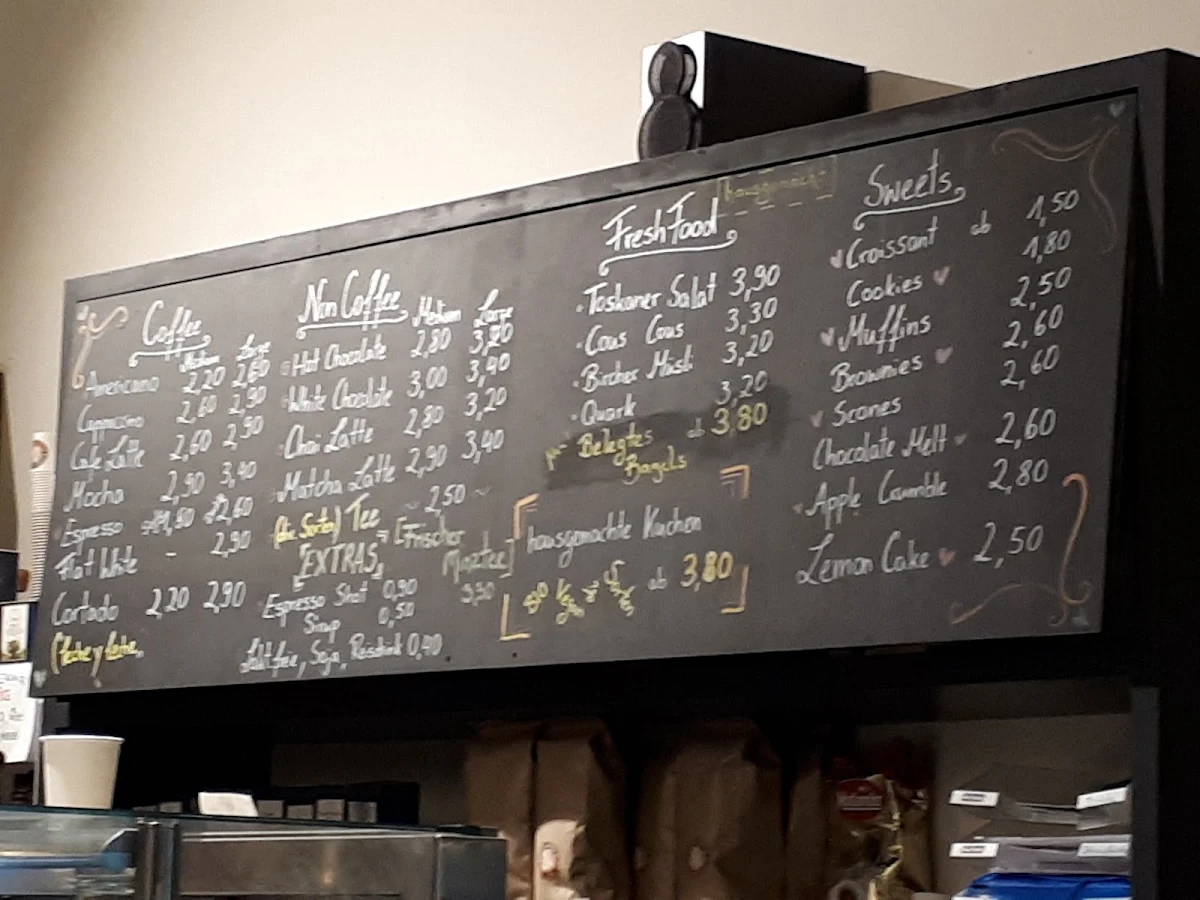 Coffee
Medium Large
Americano 2,20 2,60
Cappuccino 2,60 2,90
Cafe Latte 2,60 2,90
Mocha 2,90 3,40
Espresso 2,60
Flat White - 2,90
Cortado 2,20 2,90
Non Coffee
Medium Large
Hot Chocolate 2,80 3,20
White Chocolate 3,00 3,40
Chai Latte 2,80 3,20
Matcha Latte 2,90 3,40
(div. Sorten) Tee ~ 2,50 ~
[EXTRAS]
[Frischer
Minztee]
3,30
Espresso Shot 0,90
Sirup 0,50
Soja, 0,40
hausgemacht
Fresh Food
Toskaner Salat 3,90
Cous Cous 3,30
Bircher Müsli 3,20
Quark 3,20
Belegtes ab 3,80
Bagels
hausgemachte Kuchen
ab 3,80
Sweets
Croissant ab 1,50
Cookies 1,80
Muffins 2,50
Brownies 2,60
Scones 2,60
Chocolate Melt 2,60
Apple Crumble 2,80
Lemon Cake 2,50